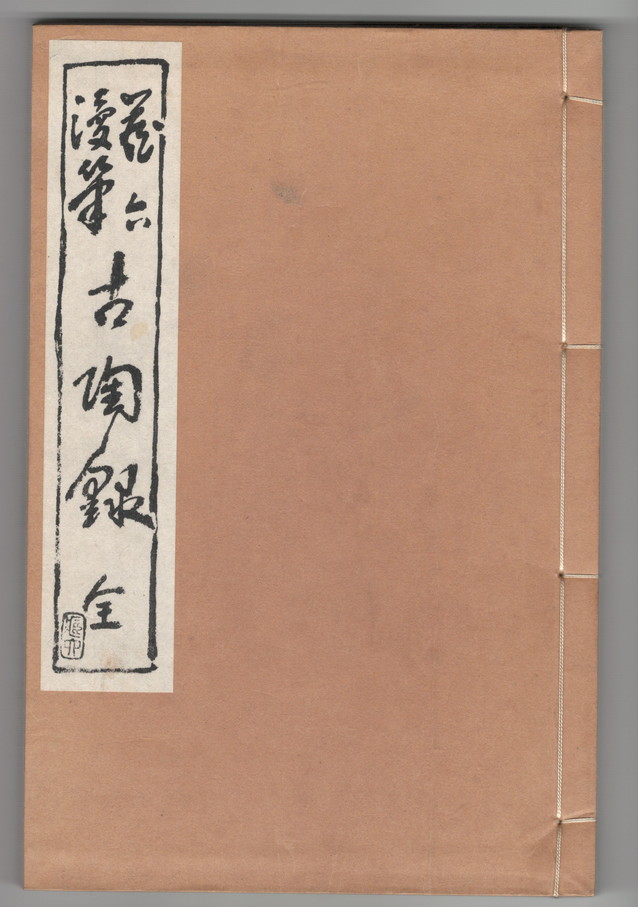 蔵六
漫筆
古陶録 全